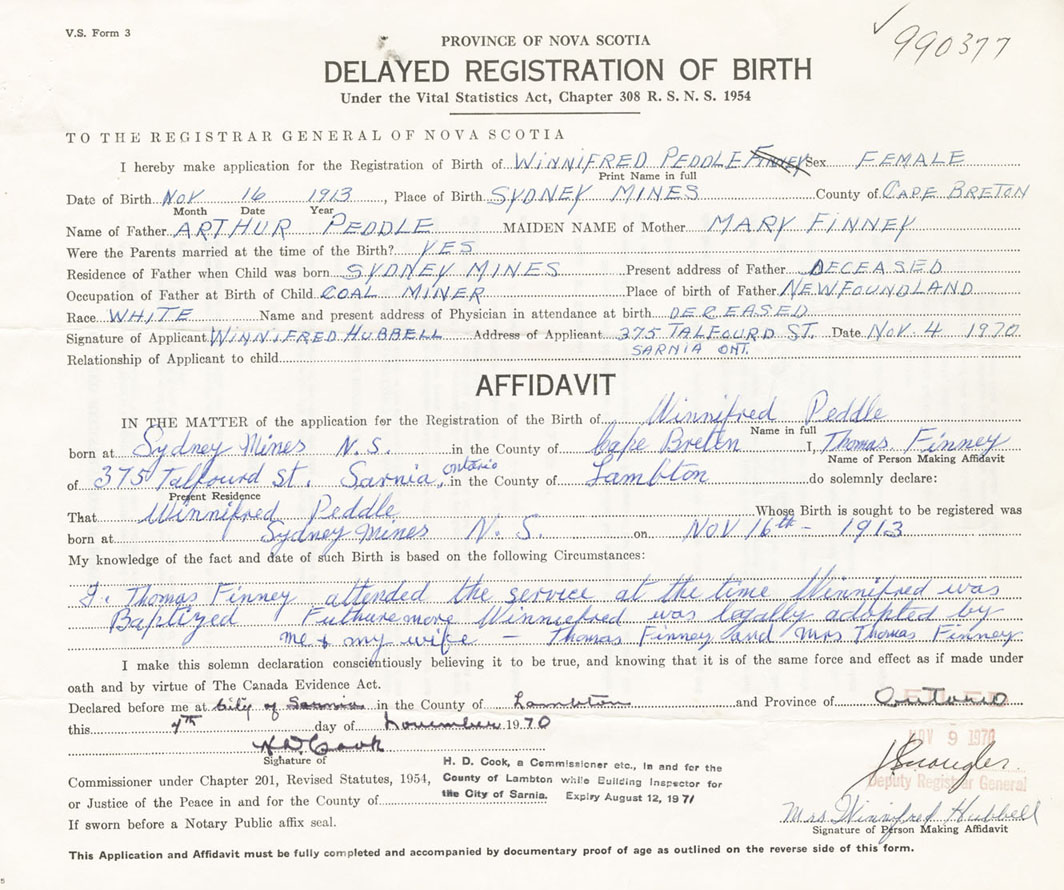 V.S. Form 3
990377
PROVINCE OF NOVA SCOTIA
DELAYED REGISTRATION OF BIRTH
Under the Vital Statistics Act, Chapter 308 R. S. N. S. 1954
TO THE REGISTRAR GENERAL OF NOVA SCOTIA
I hereby make application for the Registration of Birth of WINNIFRED PEDDLE FINNEY Sex FEMALE
Print Name in full
Date of Birth NOV 16 1913, Place of Birth SYDNEY MINES County of CAPE BRETON
Month Date Year
Name of Father ARTHUR PEDDLE MAIDEN NAME of Mother MARY FINNEY
Were the Parents married at the time of the Birth? YES
Residence of Father when Child was born SYDNEY MINES Present address of Father DECEASED
Occupation of Father at Birth of Child COAL MINER Place of birth of Father NEWFOUNDLAND
Race WHITE Name and present address of Physician in attendance at birth DECEASED
Signature of Applicant WINNIFRED HUBBELL Address of Applicant 375 TALFOURD ST. Date NOV. 4 1970
SARNIA ONT.
Relationship of Applicant to child
AFFIDAVIT
IN THE MATTER of the application for the Registration of the Birth of Winnifred Peddle
Name in full
born at Sydney Mines N.S. in the County of Cape Breton I, Thomas Finney
Name of Person Making Affidavit
of 375 Talfourd St. Sarnia, Ontario in the County of Lambton do solemnly declare:
Present Residence
That Winnifred Peddle Whose Birth is sought to be registered was
born at Sydney Mines N.S. on NOV 16th - 1913
My knowledge of the fact and date of such Birth is based on the following Circumstances:
I. Thomas Finney attended the service at the time Winnifred was
Baptized Futhuremore Winniefred was legally adopted by
me & my wife - Thomas Finney and Mrs Thomas Finney
I make this solemn declaration conscientiously believing it to be true, and knowing that it is of the same force and effect as if made under
oath and by virtue of The Canada Evidence Act.
Declared before me at City of Sarnia in the County of Lambton and Province of Ontario
this 4th day of November 1970
NOV 9 1970
HD Cook
Signature of
Commissioner under Chapter 201, Revised Statutes, 1954,
or Justice of the Peace in and for the County of
If sworn before a Notary Public affix seal.
H. D. Cook, a Commissioner etc., in and for the
County of Lambton while Building Inspector for
the City of Sarnia. Expiry August 12, 1971
Deputy Registrar General
Mrs Winnifred Hubbell
Signature of Person Making Affidavit
This Application and Affidavit must be fully completed and accompanied by documentary proof of age as outlined on the reverse side of this form.